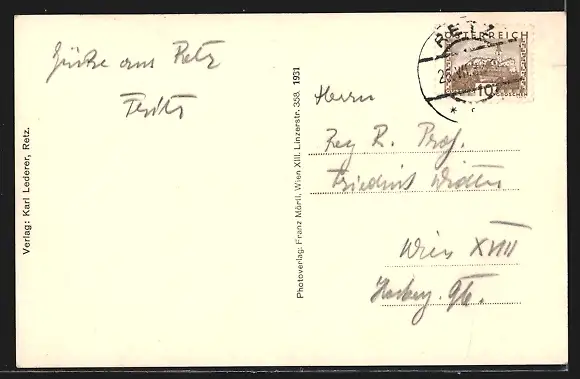 Grüße aus Retz
Fritz
Verlag: Karl Lederer, Retz.
Photoverlag: Franz Mörtl, Wien XIII. Linzerstr. 358. 1931
RETZ
ÖSTERREICH
10
Herrn
Reg R. Prof.
Friedrich
Wien XVIII